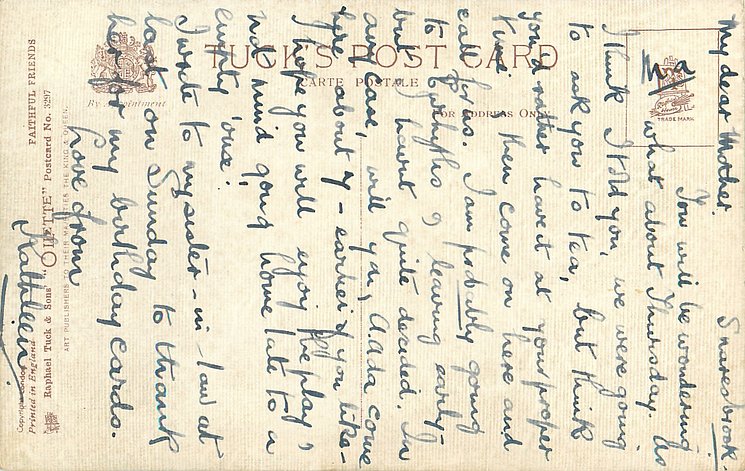 My dear Mother Snaresbrook.
You will be wondering
what about Thursday. As
I think I told you, we were going
to ask you to tea, but think
you'd rather have it at your proper
then come on here and
call for us. I am probably going
to leaving early -
but I havnt quite decided. In
any case, will you & Dada come
here about 7 - earlier if you like -
I hope you will enjoy the play &
not mind going home late to a
empty 'ouse!
I wrote to my sister-in-law at
last on Sunday to thank
her for my birthday cards.
Love from
Kathleen
TUCK'S POST CARD
CARTE POSTALE
By Appointment
FOR ADDRESS ONLY
TRADE MARK
FAITHFUL FRIENDS
Raphael Tuck & Sons' "OILETTE" Postcard No. 3297
ART PUBLISHERS TO THEIR MAJESTIES THE KING & QUEEN.
Copyright London
Printed in England